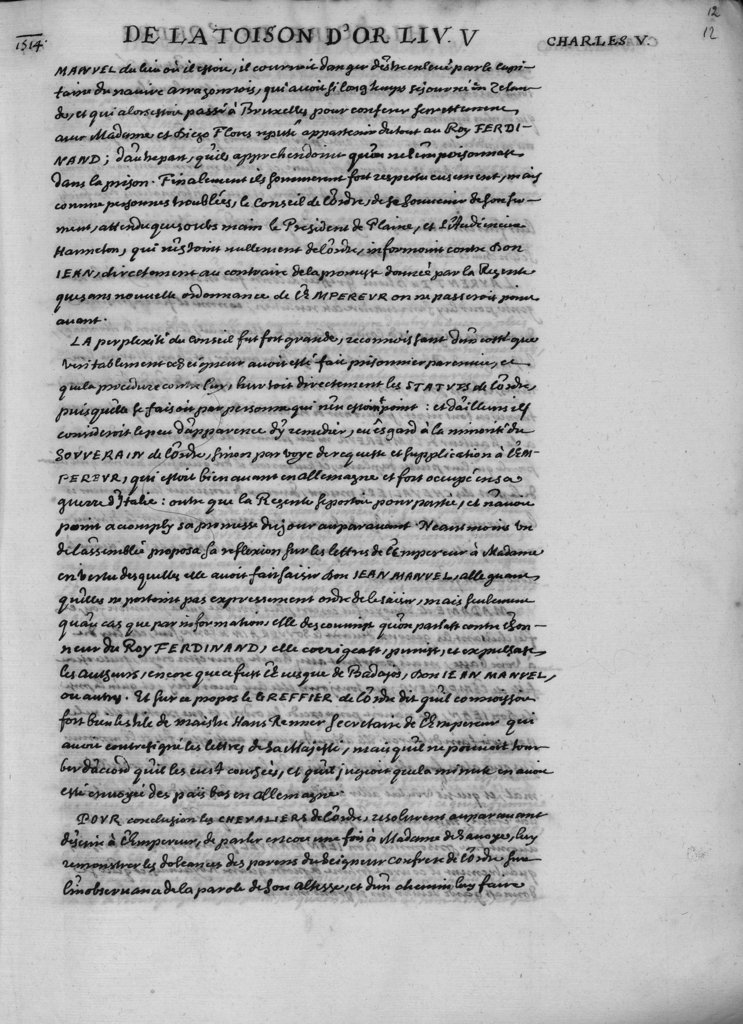 12
12
1514.
DE LA TOISON D'OR LIV. V
CHARLES V.
MANVEL du lieu où il estoit, il courroit danger d'estre enlevé par le capi-
taine du navire arragonnois, qui avoit si long temps sejourné en Zelan-
de, et qui alors estoit passé à Bruxelles pour conferer secrettement
avec Madame et Diego Flores reputé appartenir du tout au Roy FERDI-
NAND; d'autre part, qu'ils apprehendoint qu'on ne l'empoisonnast
dans la prison. Finalement ils sommerent fort respectueusement, mais
comme personnes troublées, le Conseil de l'ordre, de se souvenir de son ser-
ment, attendu que soubs main le President de Plaine, et l'Audiencier
Hanneton, qui n'estoint nullement de l'ordre, informoint contre Don
IEAN, directement au contraire de la promesse donnée par la Regente
que sans nouvelle ordonnance de l'EMPEREVR on ne passeroit point
avant.
LA perplexité du Conseil fut fort grande, reconnoissant d'un costé que
veritablement ce Seigneur avoit esté fait prisonnier par envie, et
que la procedure contre luy, heurtoit directement les STATVTS de l'ordre,
puis qu'elle se faisoit par personnes qui n'en estoint point: et d'ailleurs ils
consideroit le peu d'apparence d'y remedier, eu esgard à la minorité du
SOUVERAIN de l'ordre, sinon par voye de requeste et supplication à l'EM-
PEREVR, qui estoit bien avant en allemagne et fort occupé en sa
guerre d'Italie: outre que la Regente se portoit pour partie, et n'avoit
point accomply sa promesse du jour auparavant. Neantmoins un
de l'assemblée proposa sa reflexion sur les lettres de l'Empereur à Madame
en vertu desquelles elle avoit fait saisir Don IEAN MANVEL, alleguant
qu'elles ne portoint pas expressement ordre de le saisir, mais seulement
qu'au cas que par information, elle descouvrist qu'on parlast contre l'hon-
neur du Roy FERDINAND, elle corrigeast, punist, et expulsast
les autheurs, encore que ce fust l'Evesque de Badajos, Don IEAN MANVEL,
ou autres. Et sur ce propos le GREFFIER de l'ordre dit qu'il connoissoit
fort bien le stile de maistre Hans Renner Secretaire de l'Empereur qui
avoit contresigné les lettres de sa Majesté, mais qu'il ne pouvoit tom-
ber d'accord qu'il les eust couchées, et qu'il jugeoit que la minute en avoit
esté envoyée des païs bas en allemagne.
POVR conclusion les CHEVALIERS de l'ordre, resolurent auparavant
d'escrire à l'Empereur, de parler encore une fois à Madame de Savoye, luy
remonstrer les doleances des parens du Seigneur Confrere de l'ordre sur
l'inobservance de la parole de son altesse, et d'un chemin luy faire